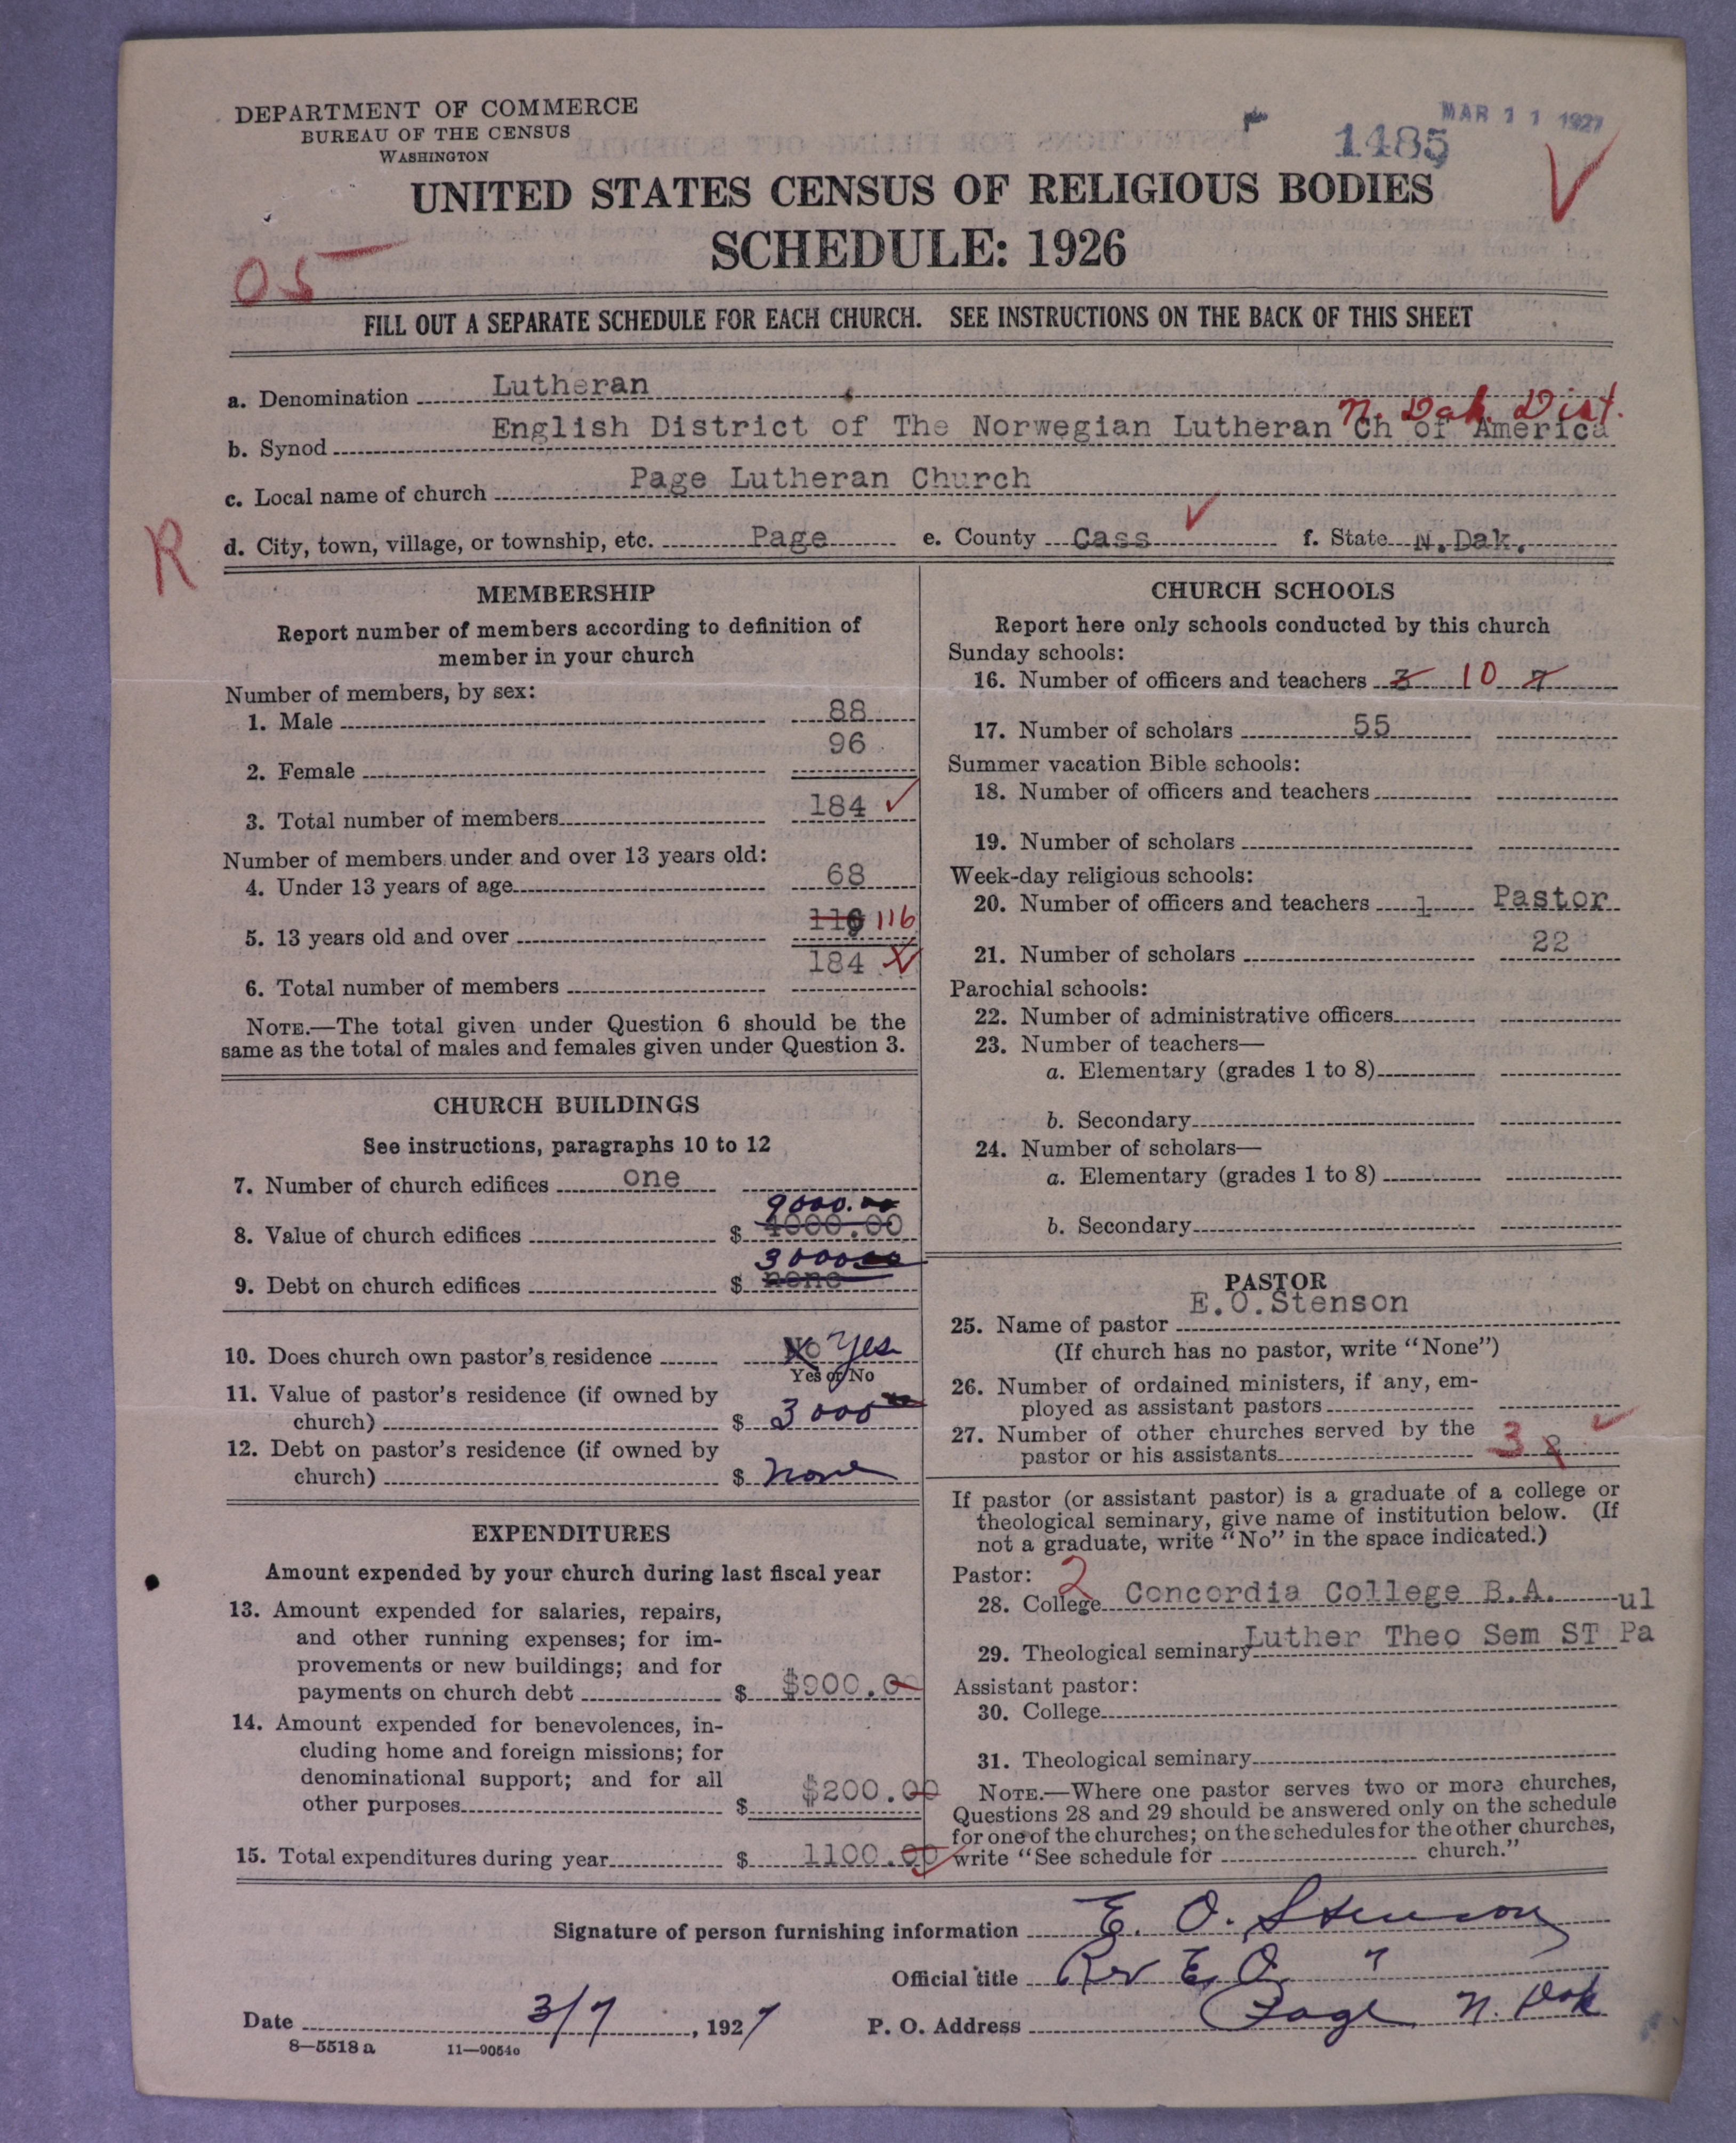 DEPARTMENT OF COMMERCE
BUREAU OF THE CENSUS
WASHINGTON
MAR 11 1927
1485
V
UNITED STATES CENSUS OF RELIGIOUS BODIES
SCHEDULE: 1926
05
FILL OUT A SEPARATE SCHEDULE FOR EACH CHURCH. SEE INSTRUCTIONS ON THE BACK OF THIS SHEET
a. Denomination Lutheran
N. Dak. Dist.
b. Synod English District of The Norwegian Lutheran Ch of America
c. Local name of church Page Lutheran Church
R
d. City, town, village, or township, etc. Page e. County Cass f. State N. Dak.
MEMBERSHIP
Report number of members according to definition of
member in your church
Number of members, by sex:
1. Male 88
2. Female 96
3. Total number of members 184
Number of members under and over 13 years old:
4. Under 13 years of age 68
5. 13 years old and over 116 116
6. Total number of members 184
NOTE.—The total given under Question 6 should be the
same as the total of males and females given under Question 3.
CHURCH BUILDINGS
See instructions, paragraphs 10 to 12
7. Number of church edifices one
9000.00
8. Value of church edifices $ 4000.00
3000.00
9. Debt on church edifices $ none
10. Does church own pastor's residence No Yes
Yes or No
11. Value of pastor's residence (if owned by
church) $ 3000 00
12. Debt on pastor's residence (if owned by
church) $ none
EXPENDITURES
Amount expended by your church during last fiscal year
13. Amount expended for salaries, repairs,
and other running expenses; for im-
provements or new buildings; and for
payments on church debt $ $900.0
14. Amount expended for benevolences, in-
cluding home and foreign missions; for
denominational support; and for all
other purposes $ $200.00
15. Total expenditures during year $ 1100.00
CHURCH SCHOOLS
Report here only schools conducted by this church
Sunday schools:
16. Number of officers and teachers 3 10 7
17. Number of scholars 55
Summer vacation Bible schools:
18. Number of officers and teachers
19. Number of scholars
Week-day religious schools:
20. Number of officers and teachers 1 Pastor
21. Number of scholars 22
Parochial schools:
22. Number of administrative officers
23. Number of teachers—
a. Elementary (grades 1 to 8)
b. Secondary
24. Number of scholars—
a. Elementary (grades 1 to 8)
b. Secondary
PASTOR
25. Name of pastor E.O.Stenson
(If church has no pastor, write "None")
26. Number of ordained ministers, if any, em-
ployed as assistant pastors
27. Number of other churches served by the
pastor or his assistants 3
If pastor (or assistant pastor) is a graduate of a college or
theological seminary, give name of institution below. (If
not a graduate, write "No" in the space indicated.)
Pastor: 2
28. College Concordia College B.A.
ul
29. Theological seminary Luther Theo Sem ST Pa
Assistant pastor:
30. College
31. Theological seminary
NOTE.—Where one pastor serves two or more churches,
Questions 28 and 29 should be answered only on the schedule
for one of the churches; on the schedules for the other churches,
write "See schedule for church."
Signature of person furnishing information E. O. Stenson
Official title Rev E. O. "
Date 3/7, 1927 P. O. Address Page N. Dak
8—5518 a 11—9054o